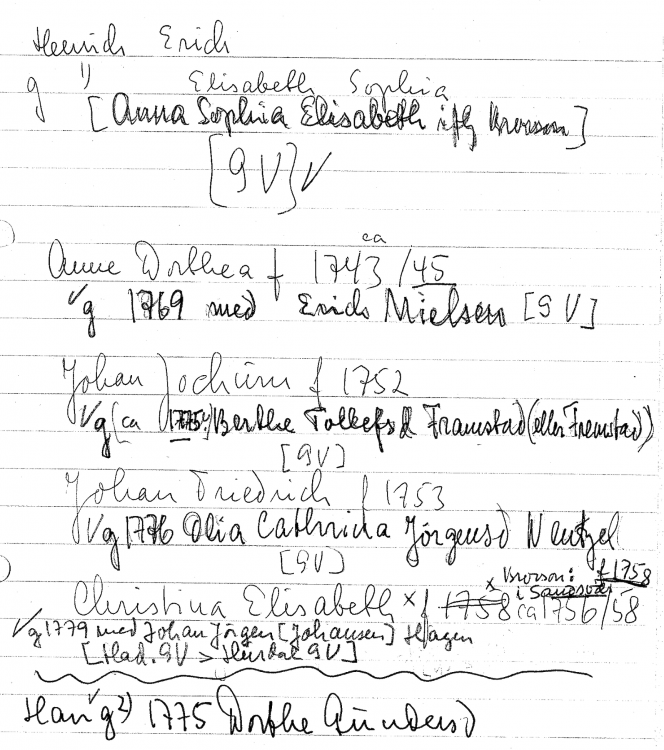 Heinrich Erich
g 1) Elisabeth Sophia
[Anna Sophia Elisabeth iflg Brorson]
[GV] v
ca
Anne Dorthea f 1743/45
v g 1769 med Erich Nielsen [GV]
Johan Jochüm f 1752
v g (ca 1775?) Berthe Tollefsd Framstad (eller Fremstad)
[GV]
Johan Friedrich f 1753
v g 1776 Olia Cathrina Jörgensd Wentzel
[GV]
x Brorson: f 1758
i Sandsvær
Christina Elisabeth x f 1758 ca 1756/58
v g 1779 med Johan Jörgen [Johansen] Hagen
[Had. GV > Hurdal GV]
Han v g 2) 1775 Dorthe Gundersd